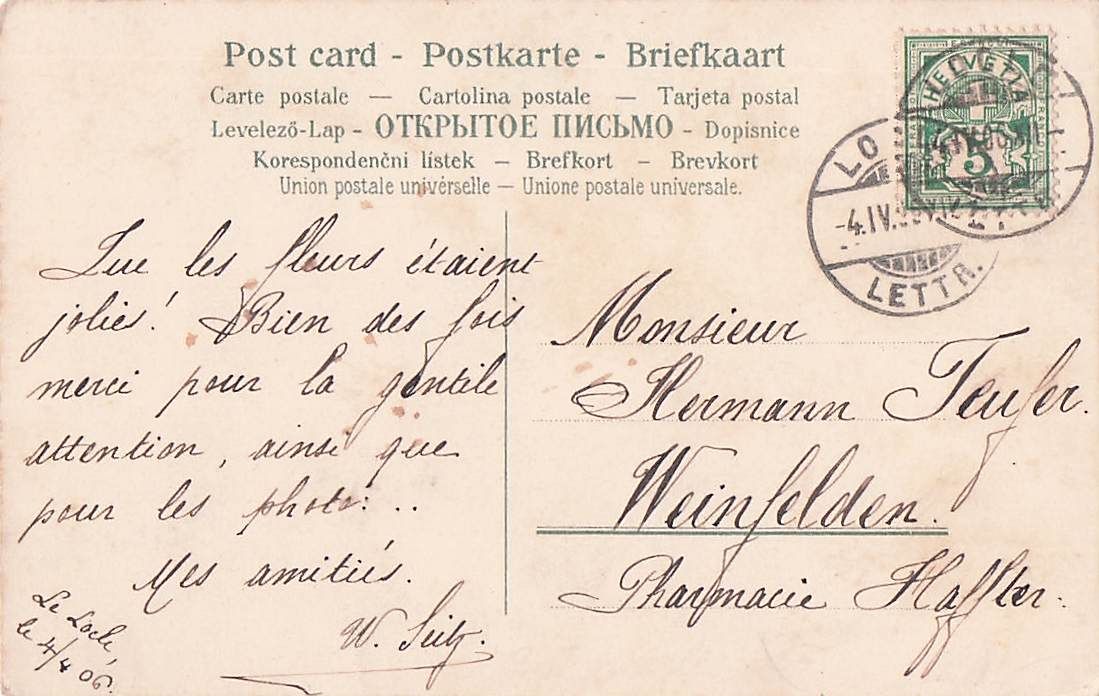 Post card - Postkarte - Briefkaart
Carte postale — Cartolina postale — Tarjeta postal
Levelező-Lap - ОТКРЫТОЕ ПИСЬМО - Dopisnice
Korespondenčni lístek — Brefkort — Brevkort
Union postale universelle — Unione postale universale.
HELVETIA
5
LO
-4.IV.
LETTR.
Que les fleurs étaient
jolies! Bien des fois
merci pour la gentile
attention, ainsi que
pour les photo: ..
Mes amitiés.
W. Seitz.
Le Locle,
le 4/4 06.
Monsieur
Hermann Teufer.
Weinfelden.
Pharmacie Haffter.